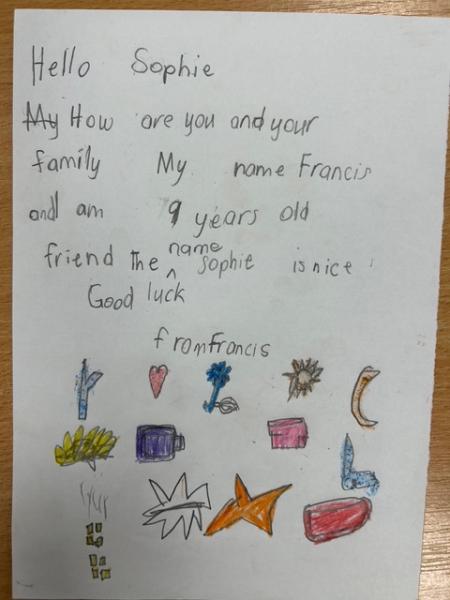 Hello Sophie
My How are you and your
family My name Francis
and am 9 years old
friend the name sophie is nice
Good luck
from Francis